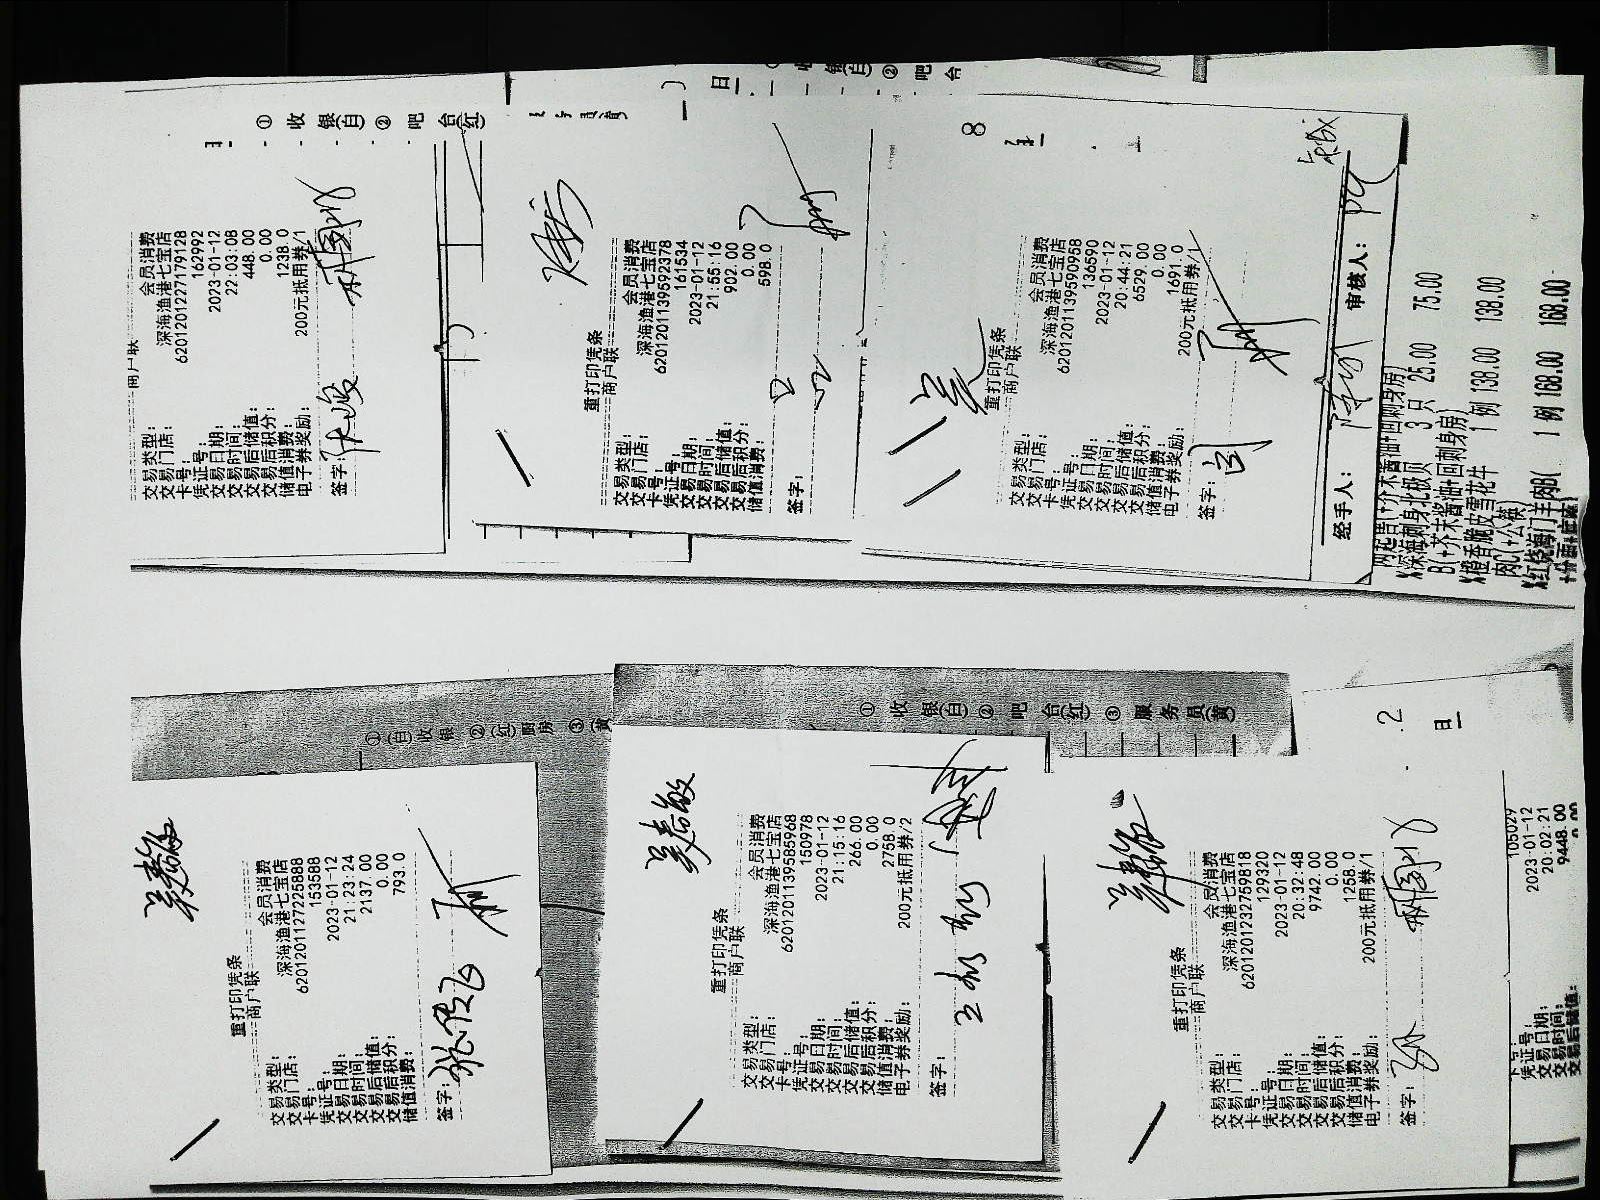 ① 收 银(白) ② 吧 台(红)
商户联
交易类型: 会员消费
交易门店: 深海渔港七宝店
卡号: 6201201227179128
凭证号: 162992
交易日期: 2023-01-12
交易时间: 22:03:08
交易后储值: 448.00
交易后积分: 0.00
储值消费: 1238.0
电子券奖励: 200元抵用券/1
签字:
重打印凭条
商户联
交易类型: 会员消费
交易门店: 深海渔港七宝店
卡号: 6201201139592378
凭证号: 161534
交易日期: 2023-01-12
交易时间: 21:55:16
交易后储值: 902.00
交易后积分: 0.00
储值消费: 598.0
签字:
8
重打印凭条
商户联
交易类型: 会员消费
交易门店: 深海渔港七宝店
卡号: 6201201139590958
凭证号: 136590
交易日期: 2023-01-12
交易时间: 20:44:21
交易后储值: 6529.00
交易后积分: 0.00
储值消费: 1691.0
电子券奖励: 200元抵用券/1
签字:
经手人: 审核人:
※深海刺身北极贝 3 只 25.00 75.00
B(+芥末酱油+回刺身房)
※橙香脆皮雪花牛 1 例 138.00 138.00
肉(+公筷)
※红烧海门羊肉B( 1 例 168.00 168.00
① (白)收 银 ② (红)厨 房 ③ (黄
吴春敏
重打印凭条
商户联
交易类型: 会员消费
交易门店: 深海渔港七宝店
卡号: 6201201127225888
凭证号: 153588
交易日期: 2023-01-12
交易时间: 21:23:24
交易后储值: 2137.00
交易后积分: 0.00
储值消费: 793.0
签字:
① 收 银(白) ② 吧 台(红) ③ 服 务 员(黄)
吴春敏
重打印凭条
商户联
交易类型: 会员消费
交易门店: 深海渔港七宝店
卡号: 6201201139585968
凭证号: 150978
交易日期: 2023-01-12
交易时间: 21:15:16
交易后储值: 266.00
交易后积分: 0.00
储值消费: 2758.0
电子券奖励: 200元抵用券/2
签字:
2
日
吴春敏
重打印凭条
商户联
交易类型: 会员消费
交易门店: 深海渔港七宝店
卡号: 6201201232759818
凭证号: 129320
交易日期: 2023-01-12
交易时间: 20:32:48
交易后储值: 9742.00
交易后积分: 0.00
储值消费: 1258.0
电子券奖励: 200元抵用券/1
签字:
凭证号: 105029
交易日期: 2023-01-12
交易时间: 20:02:21
交易后储值: 9448.00